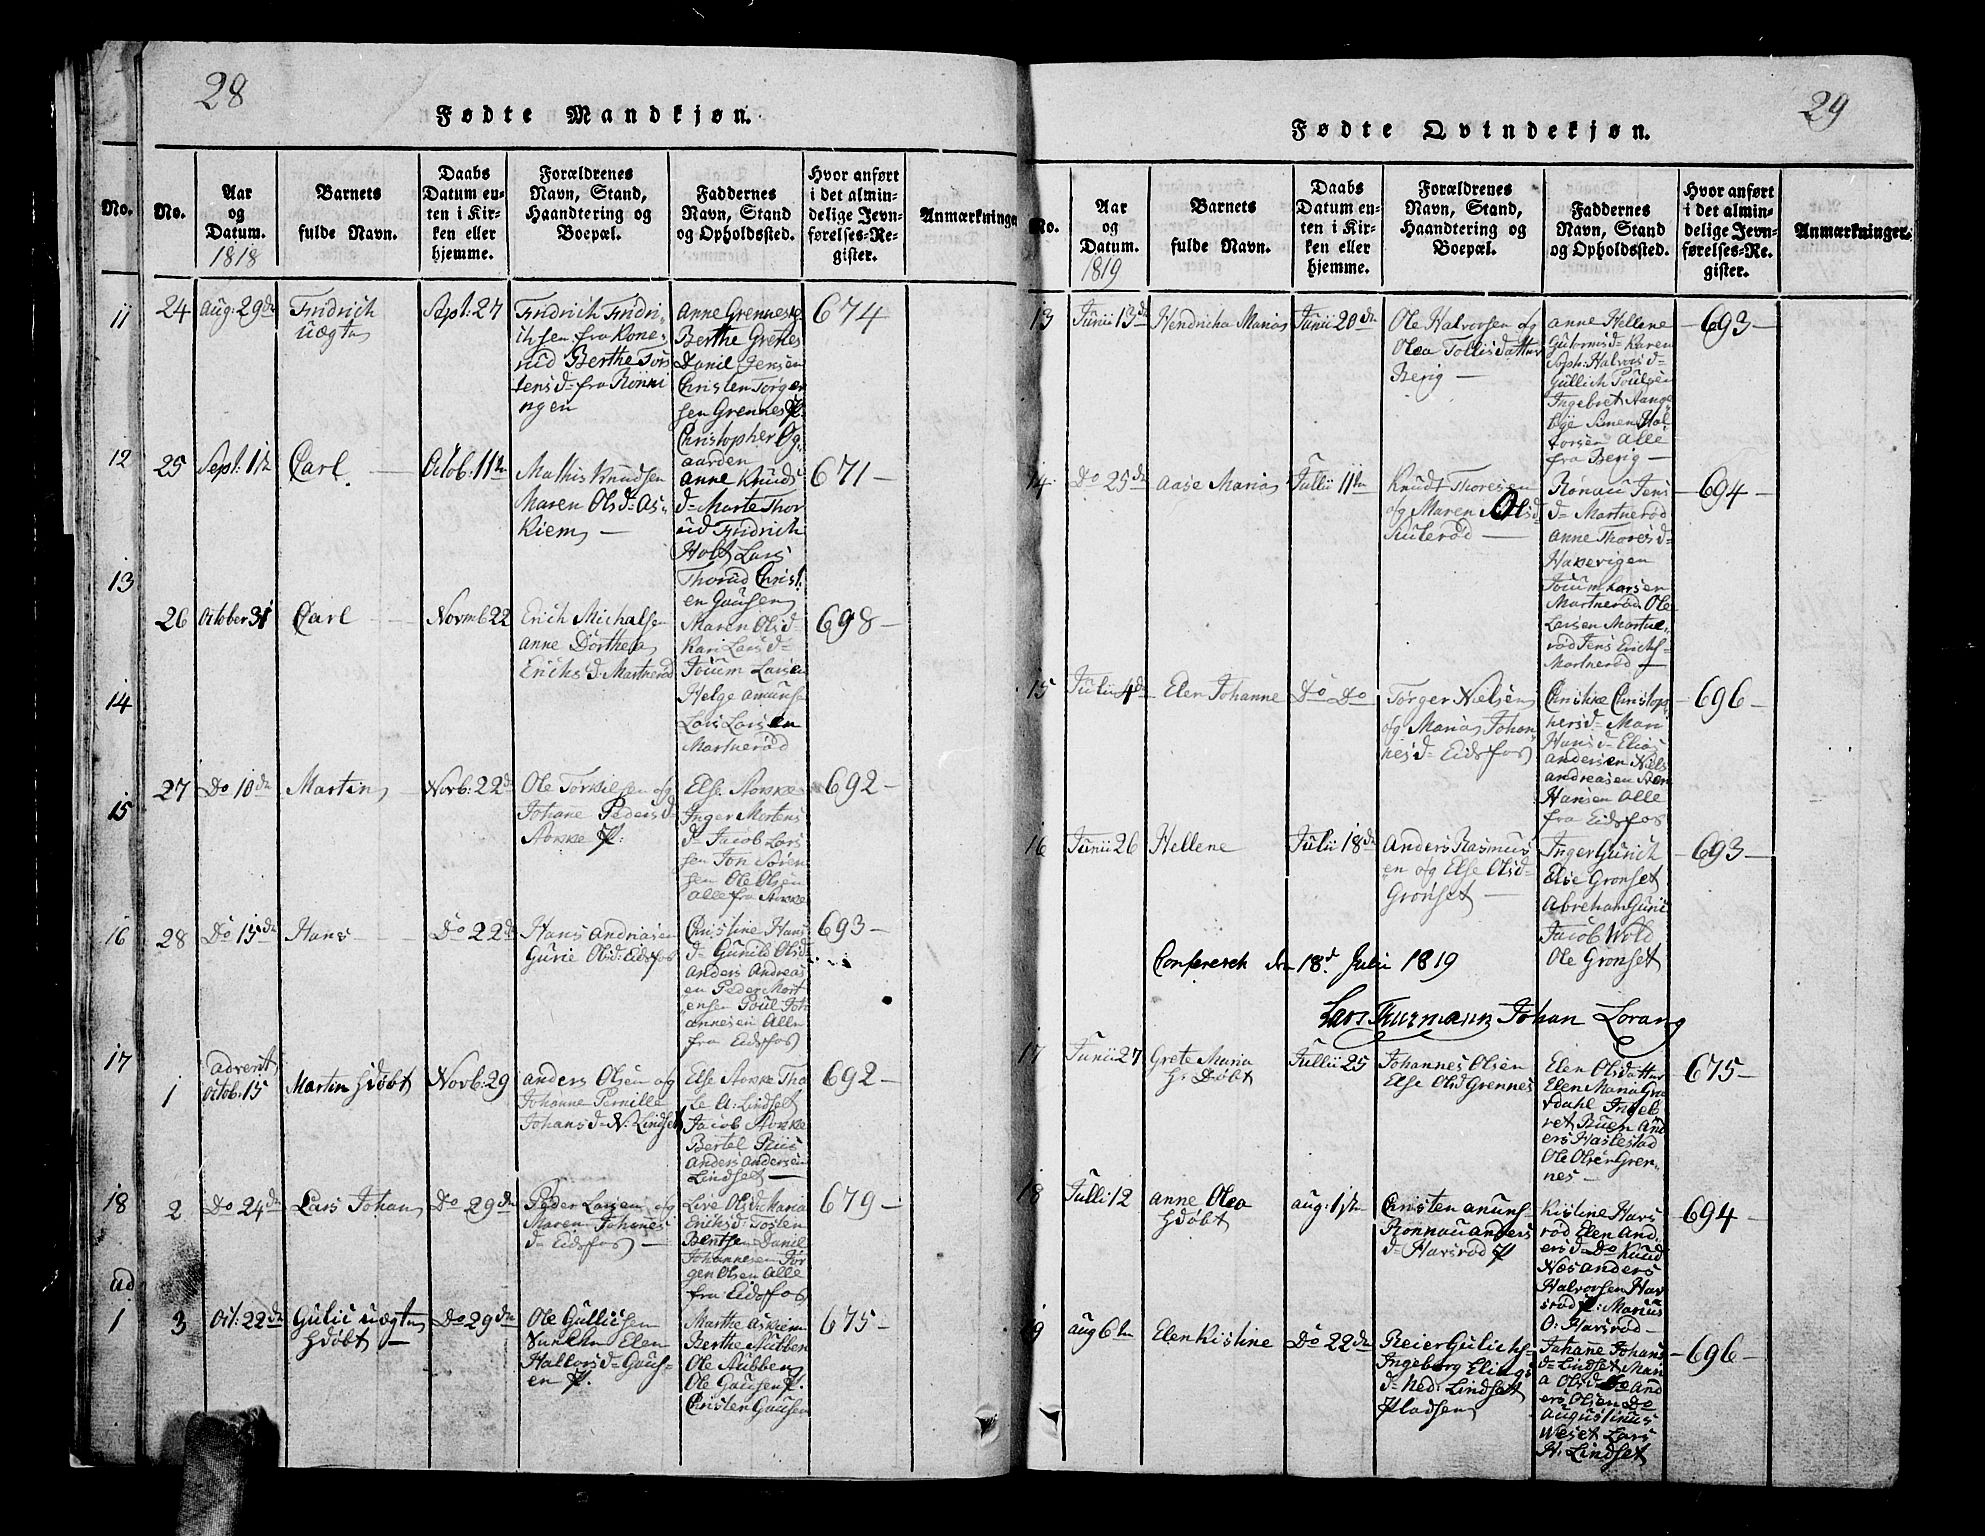 28
Fødte Mandkjøn.
No.
No.
Aar
og
Datum.
1818
Barnets
fulde Navn.
Daabs
Datum en-
ten i Kir-
ken eller
hjemme.
Forældrenes
Navn, Stand,
Haandtering og
Boepæl.
Faddernes
Navn, Stand
og Opholdssted.
Hvor anført
i det almin-
delige Jevn-
førelses-Re-
gister.
Anmærkninger
11
12
13
14
15
16
17
18
ud
1
24
Aug: 29de
Fridrich
uægte
Sept: 27
Fridrich Fridri-
chsen fra Kone-
rud Berthe Tors
tensd- fra Rønni
ngen
Anne Grennes
Berthe Grenes
Danil Jensen
Christen Torger
sen Grennes P:
Christopher Og
aarden
674
25
Sept: 1ste
Carl
Octob: 11te
Mathis Knudsen
Maren Olsd- As-
kiem
Anne Knuds
d- Marte Thor
ud Fridrich
Holt Lars
Thorud Christ
en Gausen
671
26
October 31
Carl
Novmb 22
Erich Michalsen
Anne Dorthea
Erichsd- Martnerød
Maren Olsd-
Kari Larsd-
Jouum Larsen
Helge Amunsen
Lars Larsen
Martnerød
698
27
Do 10de
Martin
Novb: 22d
Ole Torkilsen og
Johane Pedersd-
Aorke P:
Else Aorke
Inger Mortens
d- Jacob Lar
sen Jon Søren
sen Ole Olsen
alle fra Aorke
692
28
Do 15de
Hans
Do 22d
Hans Andriasen
Gurie Olsd: Eidsfos
Christine Hans
d- Gunild Olsd-
Anders Andreas
en Peder Mort
ensen Poul Joh
annesen Alle
fra Eidsfos
693
1
Advent
Octob: 15
Martin hdøbt
Novb: 29
Anders Olsen og
Johanne Pernille
Johansd- N: Lindset
Else Aorke Tho
le A: Lindset
Jacob Aorke
Bertel Riis
Anders Andersen
Lindset
692
2
Do 24de
Lars Johan
Do 29de
Peder Larsen og
Maren Johanes
d- Eidsfos
Live Olsd- Maria
Erichsd: Tosten
Bentsen Danil
Johannesen Jør
gen Olsen Alle
fra Eidsfos
679
3
Oct: 22de
Gulic uægte
hdøbt
Do 29de
Ole Gullicsen
Elen
Halvorsd- Gaus-
en P.
Marthe Askiem
Berthe Nubben
Ole Nubben
Ole Gausen P.
Christen Gausen
675
29
Fødte Qvindekjøn.
No.
Aar
og
Datum.
1819
Barnets
fulde Navn.
Daabs
Datum en-
ten i Kir-
ken eller
hjemme.
Forældrenes
Navn, Stand,
Haandtering og
Boepæl.
Faddernes
Navn, Stand
og Opholdssted.
Hvor anført
i det almin-
delige Jevn-
førelses-Re-
gister.
Anmærkninger.
13
Junii 13de
Hendricha Maria
Junii 20de
Ole Halvorsen og
Olea Tollisdatter
Berig
Anne Hellene
Gutormsd- Karen
Soph: Halvorsd-
Gullich Poulsen
Ingebret Aange
Simen Hal
forsen Alle
fra Berig
693
14
Do 25de
Aase Maria
Julii 11te
Knudt Thoresen
og Maren Olsd
Ruterød
Rønau Jens
d- Martnerød
Anne Thoresd-
Hakevigen
Jouum Larsen
Martnerød Ole
Larsen Martne-
rød Jens Erichs-
Martnerød
694
15
Julii 4de
Elen Johanne
Do Do
Torger Nielsen
og Maria Johan
nesd- Eidsfos
Christop
hersd- Mari
Hansd- Elias
Andersen Niels
Andreasen
Hansen Alle
fra Eidsfos
696
16
Junii 26
Hellene
Julii 18de
Anders Rasmus
en og Else Olsd-
Grønset
Inger Gurich
Else Grønset
Abreham Guric
Jacob Wold
Ole Grønset
693
Confererit den 18d. Julii 1819
Lars Thurmann Johan Lorang
17
Junii 27
Grete Maria
h: Døbt
Jullii 25
Johannes Olsen
Else Olsd Grennes
Elen Olsdatter
Elen Maria Gra
vdahl Ingeb
ret Ruen And
ers Haslestad
Ole Olsen Gren-
nes
675
18
Julii 12
Anne Olea
hdøbt
Aug: 1ste
Christen Amuns-
Ronnau Anders
d- Harsrød P
Kistine Hars
rød Elen And
ersd- Do Knud
Næs Anders
Halvorsen Har
srød P: Marius
O: Harsrød
694
19
Aug 6te
Elen Kistine
Do 22de
Reier Gulichs-
Ingeborg Elings
d- Ned: Lindset
Pladsen
Johane Johans
d- Lindset Mari
a Olsd- Do And
ers Olsen Do
Augustinus
Weset Lars
H: Lindset
696